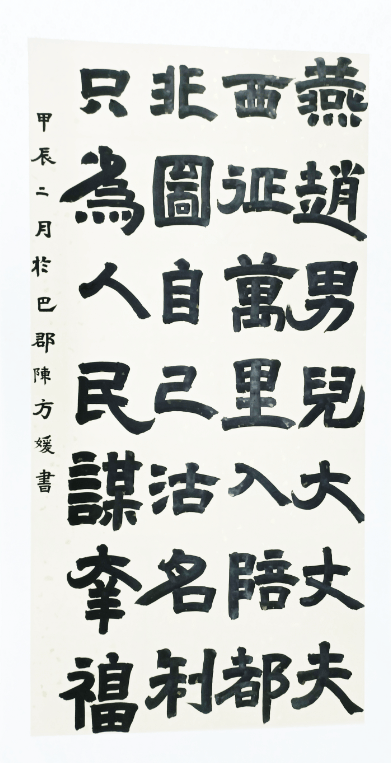 燕趙男兒大丈夫
西征萬里入陪都
非圖自己沽名利
只為人民謀幸福
甲辰二月於巴郡陳方媛書